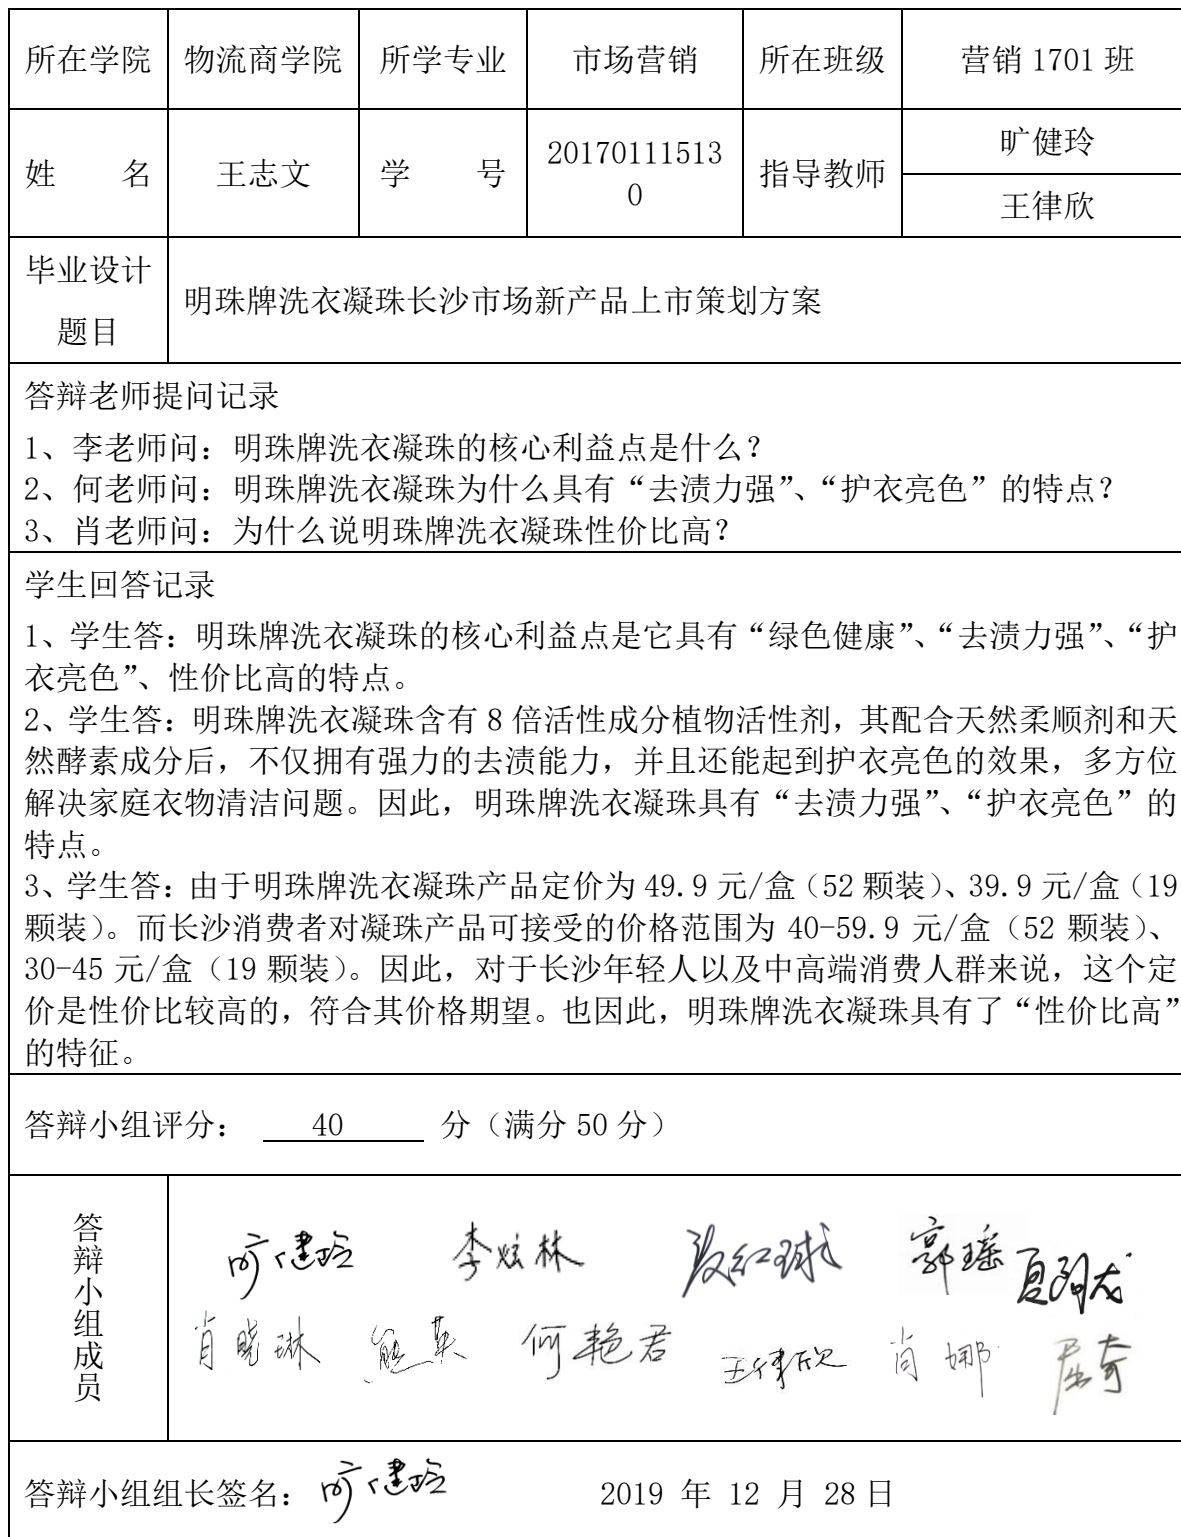 所在学院 物流商学院 所学专业 市场营销 所在班级 营销 1701 班
姓 名 王志文 学 号 20170111513
0 指导教师 旷健玲
王律欣
毕业设计
题目 明珠牌洗衣凝珠长沙市场新产品上市策划方案
答辩老师提问记录
1、李老师问：明珠牌洗衣凝珠的核心利益点是什么？
2、何老师问：明珠牌洗衣凝珠为什么具有“去渍力强”、“护衣亮色”的特点？
3、肖老师问：为什么说明珠牌洗衣凝珠性价比高？
学生回答记录
1、学生答：明珠牌洗衣凝珠的核心利益点是它具有“绿色健康”、“去渍力强”、“护
衣亮色”、性价比高的特点。
2、学生答：明珠牌洗衣凝珠含有 8 倍活性成分植物活性剂，其配合天然柔顺剂和天
然酵素成分后，不仅拥有强力的去渍能力，并且还能起到护衣亮色的效果，多方位
解决家庭衣物清洁问题。因此，明珠牌洗衣凝珠具有“去渍力强”、“护衣亮色”的
特点。
3、学生答：由于明珠牌洗衣凝珠产品定价为 49.9 元/盒（52 颗装）、39.9 元/盒（19
颗装）。而长沙消费者对凝珠产品可接受的价格范围为 40-59.9 元/盒（52 颗装）、
30-45 元/盒（19 颗装）。因此，对于长沙年轻人以及中高端消费人群来说，这个定
价是性价比较高的，符合其价格期望。也因此，明珠牌洗衣凝珠具有了“性价比高”
的特征。
答辩小组评分： 40 分（满分 50 分）
答辩小组成员
旷健玲 李炫林 段红球 郭瑶
肖晓琳 熊英 何艳君 王律欣 肖娜 屈奇
答辩小组组长签名：旷健玲 2019 年 12 月 28 日